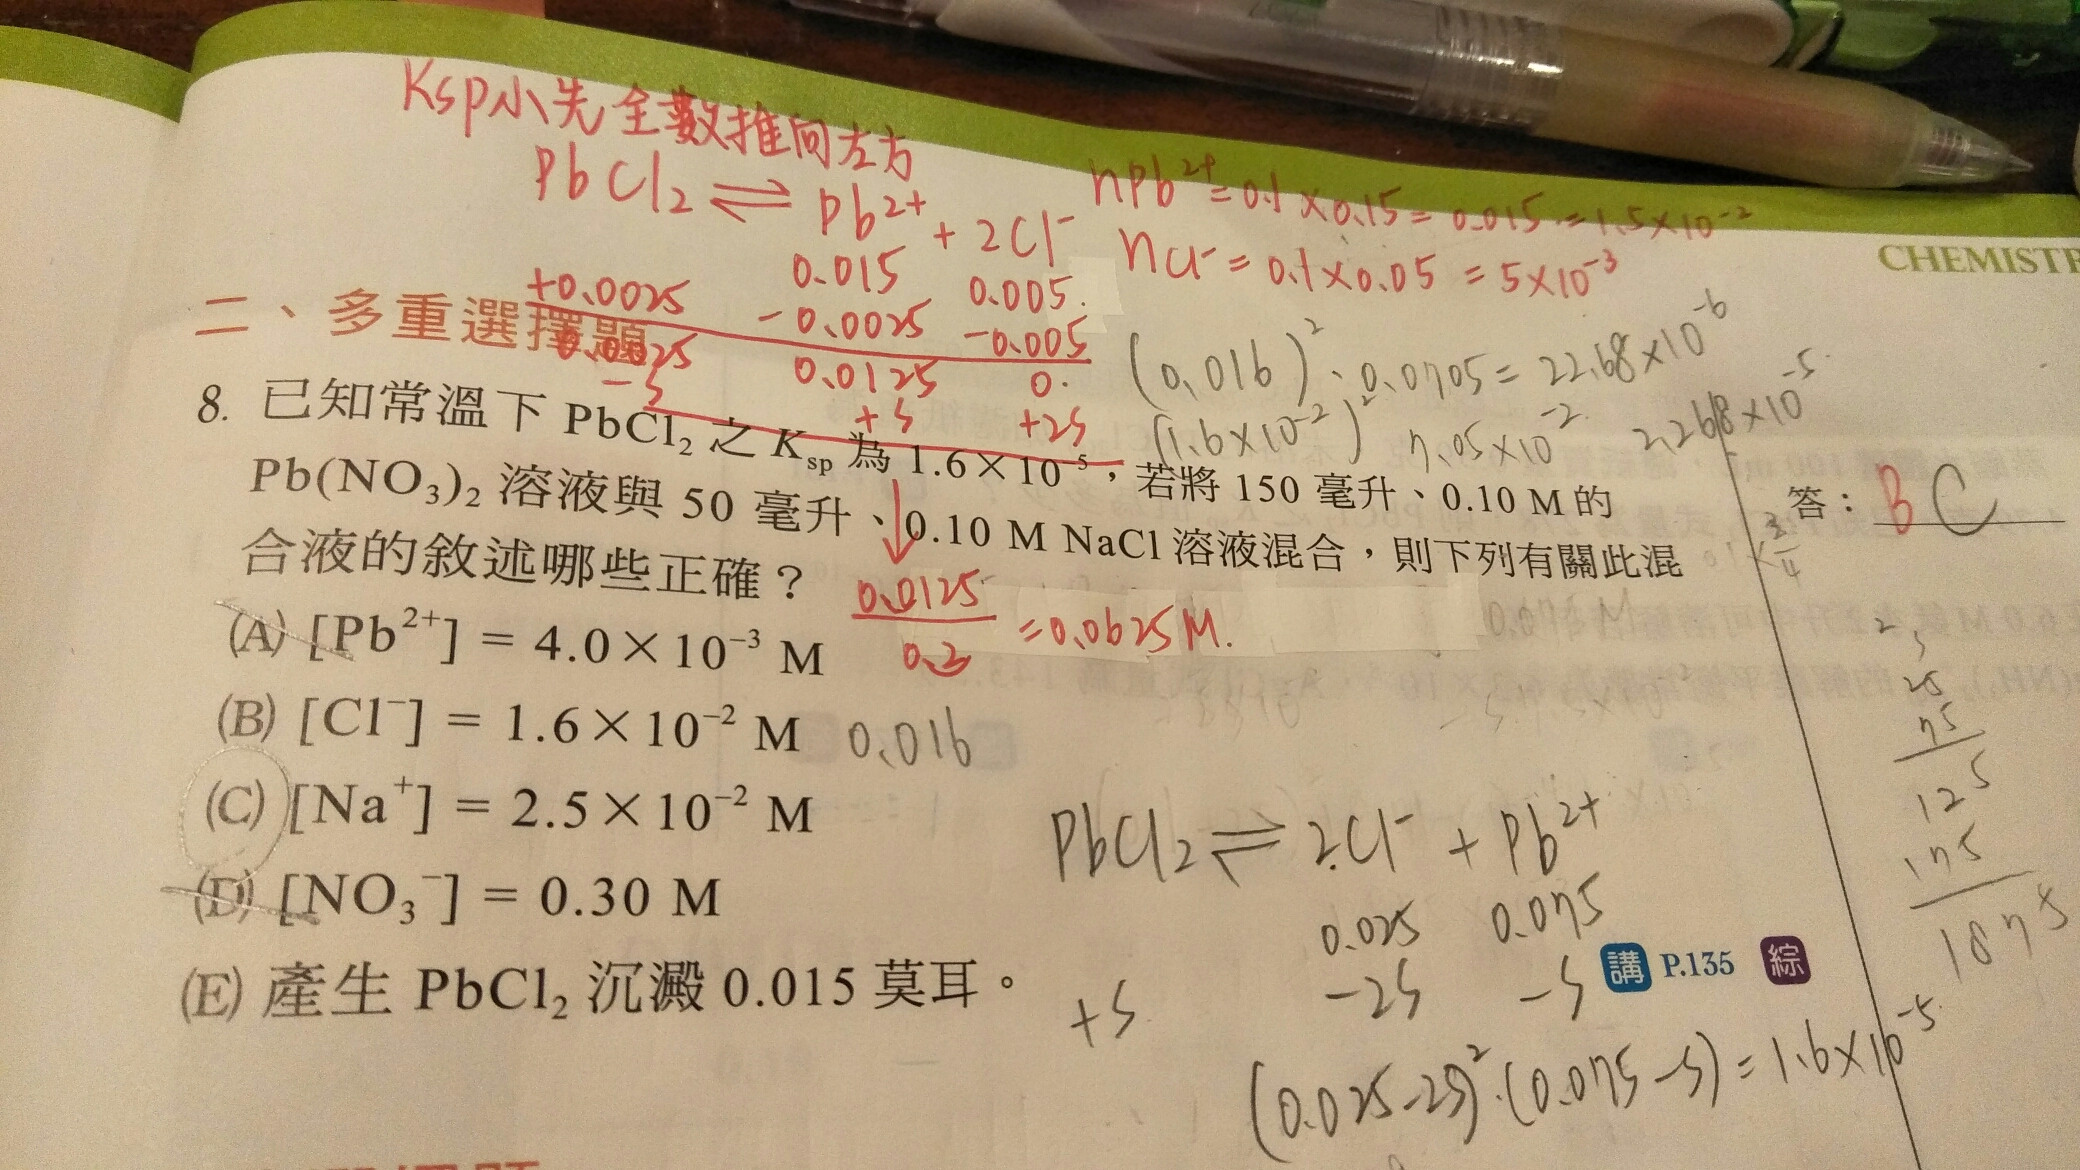 Ksp小先全數推向左方
PbCl₂ ⇌ Pb²⁺ + 2Cl⁻
nPb²⁺ = 0.1 × 0.15 = 0.015 = 1.5×10⁻²
nCl⁻ = 0.1×0.05 = 5×10⁻³
CHEMISTR
0.015 0.005
+0.0025 -0.0025 -0.005
0.0025 0.0125 0.
-s +s +2s
(0.016)²·0.0705 = 22.68×10⁻⁶
(1.6×10⁻²)² 7.05×10⁻² 2.268×10⁻⁵
二、多重選擇題
8. 已知常溫下 PbCl₂ 之 Ksp 為 1.6×10⁻⁵,若將 150 毫升、0.10 M 的
Pb(NO₃)₂ 溶液與 50 毫升、0.10 M NaCl 溶液混合,則下列有關此混
合液的敘述哪些正確?
答: B C
0.0125/0.2 = 0.0625M.
(A) [Pb²⁺] = 4.0×10⁻³ M
(B) [Cl⁻] = 1.6×10⁻² M 0.016
(C) [Na⁺] = 2.5×10⁻² M
(D) [NO₃⁻] = 0.30 M
(E) 產生 PbCl₂ 沉澱 0.015 莫耳。
PbCl₂ ⇌ 2Cl⁻ + Pb²⁺
0.025 0.075
+s -2s -s
(0.025-2s)²·(0.075-s) = 1.6×10⁻⁵
講 P.135 綜
25
75
125
175
1875